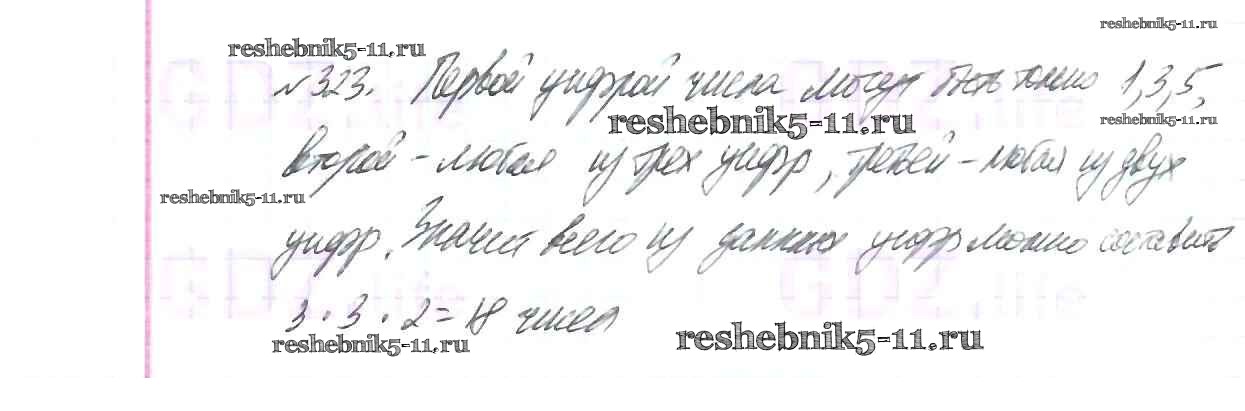 reshebnik5-11.ru
reshebnik5-11.ru
№323. Первой цифрой числа могут быть только 1,3,5,
reshebnik5-11.ru
reshebnik5-11.ru
второй - любая из трех цифр, третьей - любая из двух
reshebnik5-11.ru
цифр. Значит всего из данных цифр можно составить
GDZ.life GDZ.life
GDZ.life GDZ.life
3 · 3 · 2 = 18 чисел
reshebnik5-11.ru
reshebnik5-11.ru